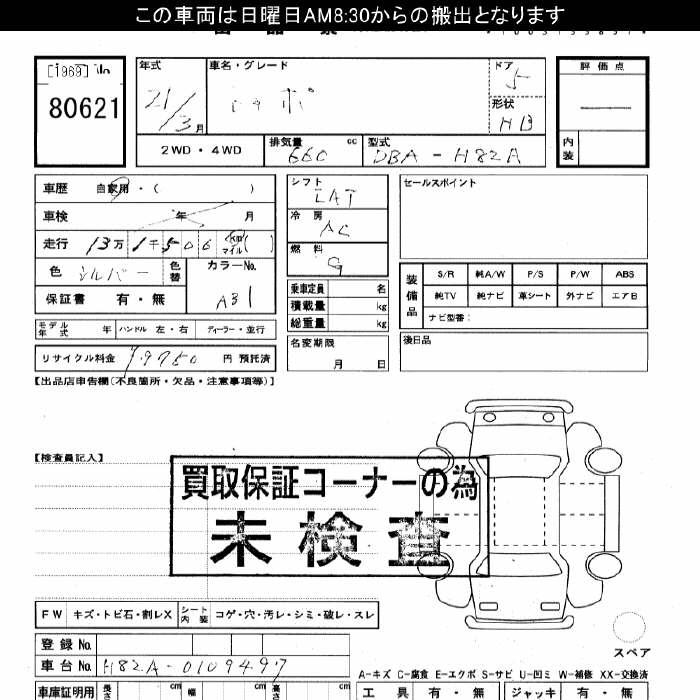 この車両は日曜日AM8:30からの搬出となります
[1969]
80621
年式
21/3月
車名・グレード
ドア
5
形状
HB
評価点
内装
2WD・4WD
排気量
660 cc
型式
DBA-H82A
車歴 自家用・( )
車検 年 月
走行 13万1千506 km マイル ( )
色 シルバー 色替
カラーNo.
A31
保証書 有・無
シフト
LAT
冷房
AC
燃料
G
乗車定員 名
積載量 kg
総重量 kg
名変期限
月 日
セールスポイント
装備品
S/R 純A/W P/S P/W ABS
純TV 純ナビ 革シート 外ナビ エアB
ナビ型番:
後日品
モデル年式 年 ハンドル 左・右 ディーラー・並行
リサイクル料金 円 預託済
【出品店申告欄(不良箇所・欠品・注意事項等)】
【検査員記入】
買取保証コーナーの為
未検査
FW キズ・トビ石・割レX シート内装 コゲ・穴・汚レ・シミ・破レ・スレ
登録No.
車台No. H82A-0109497
スペア
車庫証明用 長さ cm 幅 cm 高さ cm
A-キズ C-腐食 E-エクボ S-サビ U-凹ミ W-補修 XX-交換済
工具 有・無 ジャッキ 有・無